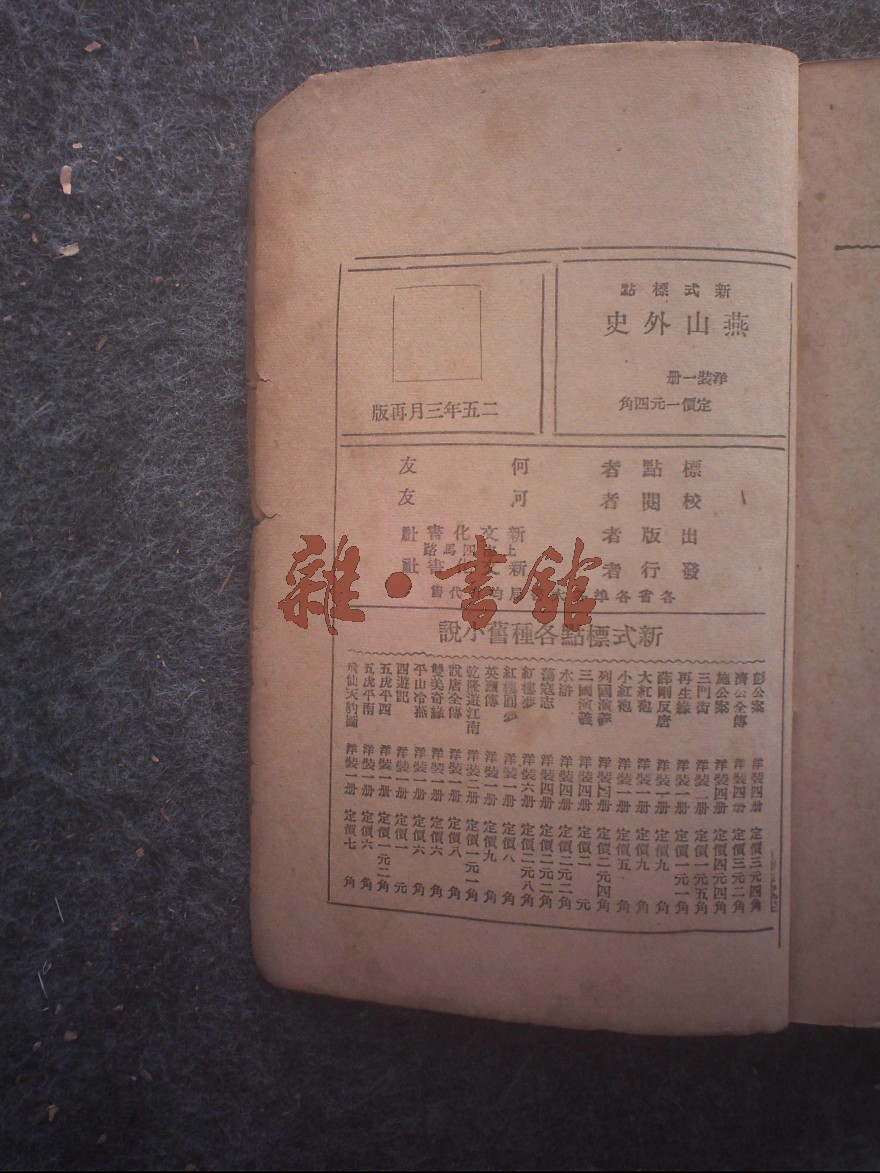 新式標點
燕山外史
洋裝一册
定價一元四角
二五年三月再版
標點者 何友
校閱者 河友
出版者 新文化書社
上 四馬路
發行者 新文化書社
各省各埠 代售
新式標點各種舊小說
彭公案 洋裝四册 定價三元四角
濟公全傳 洋裝四册 定價三元二角
施公案 洋裝四册 定價四元四角
三門街 洋裝二册 定價一元五角
再生緣 洋裝 册 定價一元一角
薛剛反唐 洋裝一册 定價九角
大紅袍 洋裝一册 定價九角
小紅袍 洋裝一册 定價五角
列國演義 洋裝四册 定價二元四角
三國演義 洋裝四册 定價二元
水滸 洋裝四册 定價二元二角
蕩寇志 洋裝四册 定價二元二角
紅樓夢 洋裝六册 定價二元八角
紅樓圓夢 洋裝一册 定價八角
英烈傳 洋裝一册 定價九角
乾隆遊江南 洋裝二册 定價一元一角
說唐全傳 洋裝一册 定價八角
雙美奇緣 洋裝一册 定價六角
平山冷燕 洋裝一册 定價六角
四遊記 洋裝一册 定價一元
五虎平西 洋裝一册 定價一元二角
五虎平南 洋裝一册 定價六角
飛仙天豹圖 洋裝一册 定價七角
雜·書館